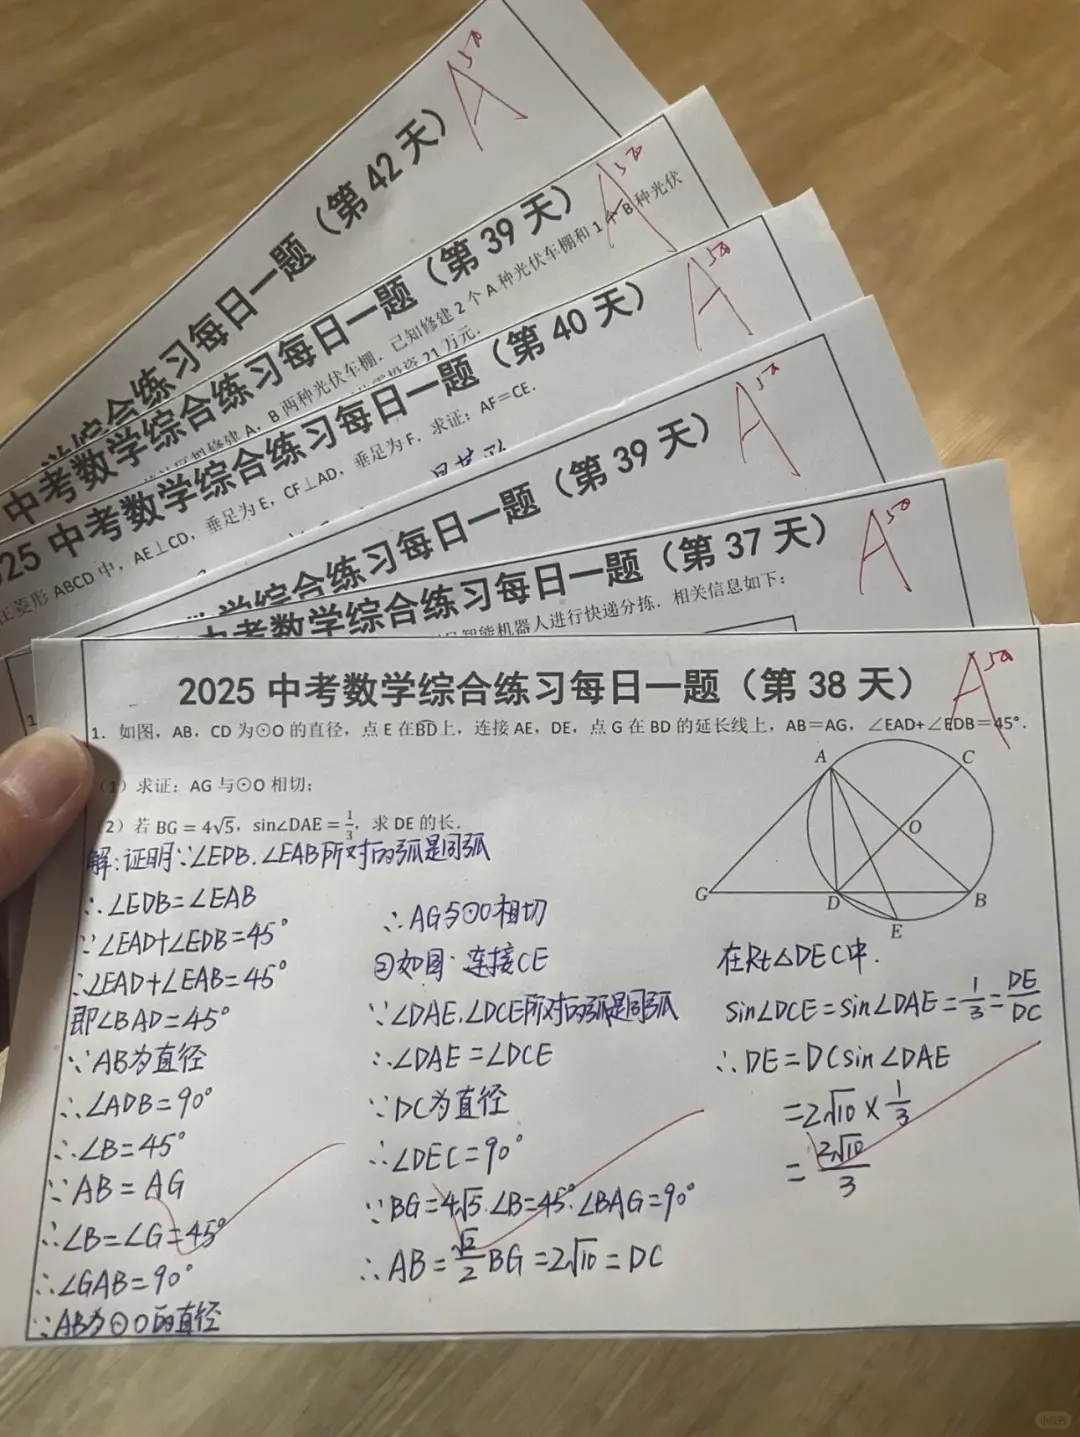 综合练习每日一题（第 42 天）
A
中考数学综合练习每日一题（第 39 天）
A
修建 A，B 两种光伏车棚．已知修建 2 个 A 种光伏车棚和 1 个 B 种光伏
21 万元．
025 中考数学综合练习每日一题（第 40 天）
A
菱形 ABCD 中，AE⊥CD，垂足为 E，CF⊥AD，垂足为 F．求证：AF＝CE．
学综合练习每日一题（第 39 天）
A
中考数学综合练习每日一题（第 37 天）
A
智能机器人进行快递分拣．相关信息如下：
1
2025 中考数学综合练习每日一题（第 38 天）
A
1．如图，AB，CD 为⊙O 的直径，点 E 在BD上，连接 AE，DE，点 G 在 BD 的延长线上，AB＝AG，∠EAD+∠EDB＝45°．
（1）求证：AG 与⊙O 相切；
（2）若 BG＝4√5，sin∠DAE＝1/3，求 DE 的长．
A
C
O
G
D
B
E
解：证明∵∠EDB．∠EAB所对的弧是同弧
∴∠EDB=∠EAB
∵∠EAD+∠EDB=45°
∴∠EAD+∠EAB=45°
即∠BAD=45°
∵AB为直径
∴∠ADB=90°
∴∠B=45°
∵AB=AG
∴∠B=∠G=45°
∴∠GAB=90°
∵AB为⊙O的直径
∴AG与⊙O相切
②如图．连接CE
∵∠DAE．∠DCE所对的弧是同弧
∴∠DAE=∠DCE
∵DC为直径
∴∠DEC=90°
∵BG=4√5．∠B=45°．∠BAG=90°
∴AB=√2/2BG=2√10=DC
在Rt△DEC中．
sin∠DCE=sin∠DAE=1/3=DE/DC
∴DE=DCsin∠DAE
=2√10×1/3
=2√10/3
小红书